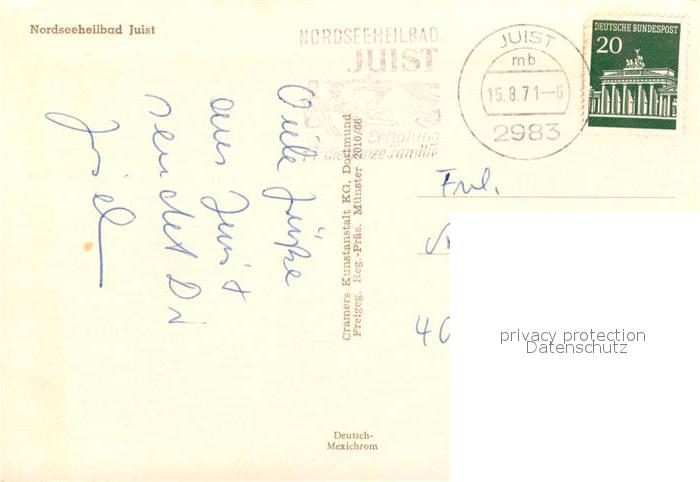 Nordseeheilbad Juist
NORDSEEHEILBAD
JUIST
Erholung
die ganze Familie
JUIST
mb
15.8.71-6
2983
DEUTSCHE BUNDESPOST
20
Viele Grüße
aus Juist
sendet Dir
Cramers Kunstanstalt KG, Dortmund
Freigeg. Reg.-Präs. Münster 2010/66
Frl.
40
privacy protection
Datenschutz
Deutsch-
Mexichrom